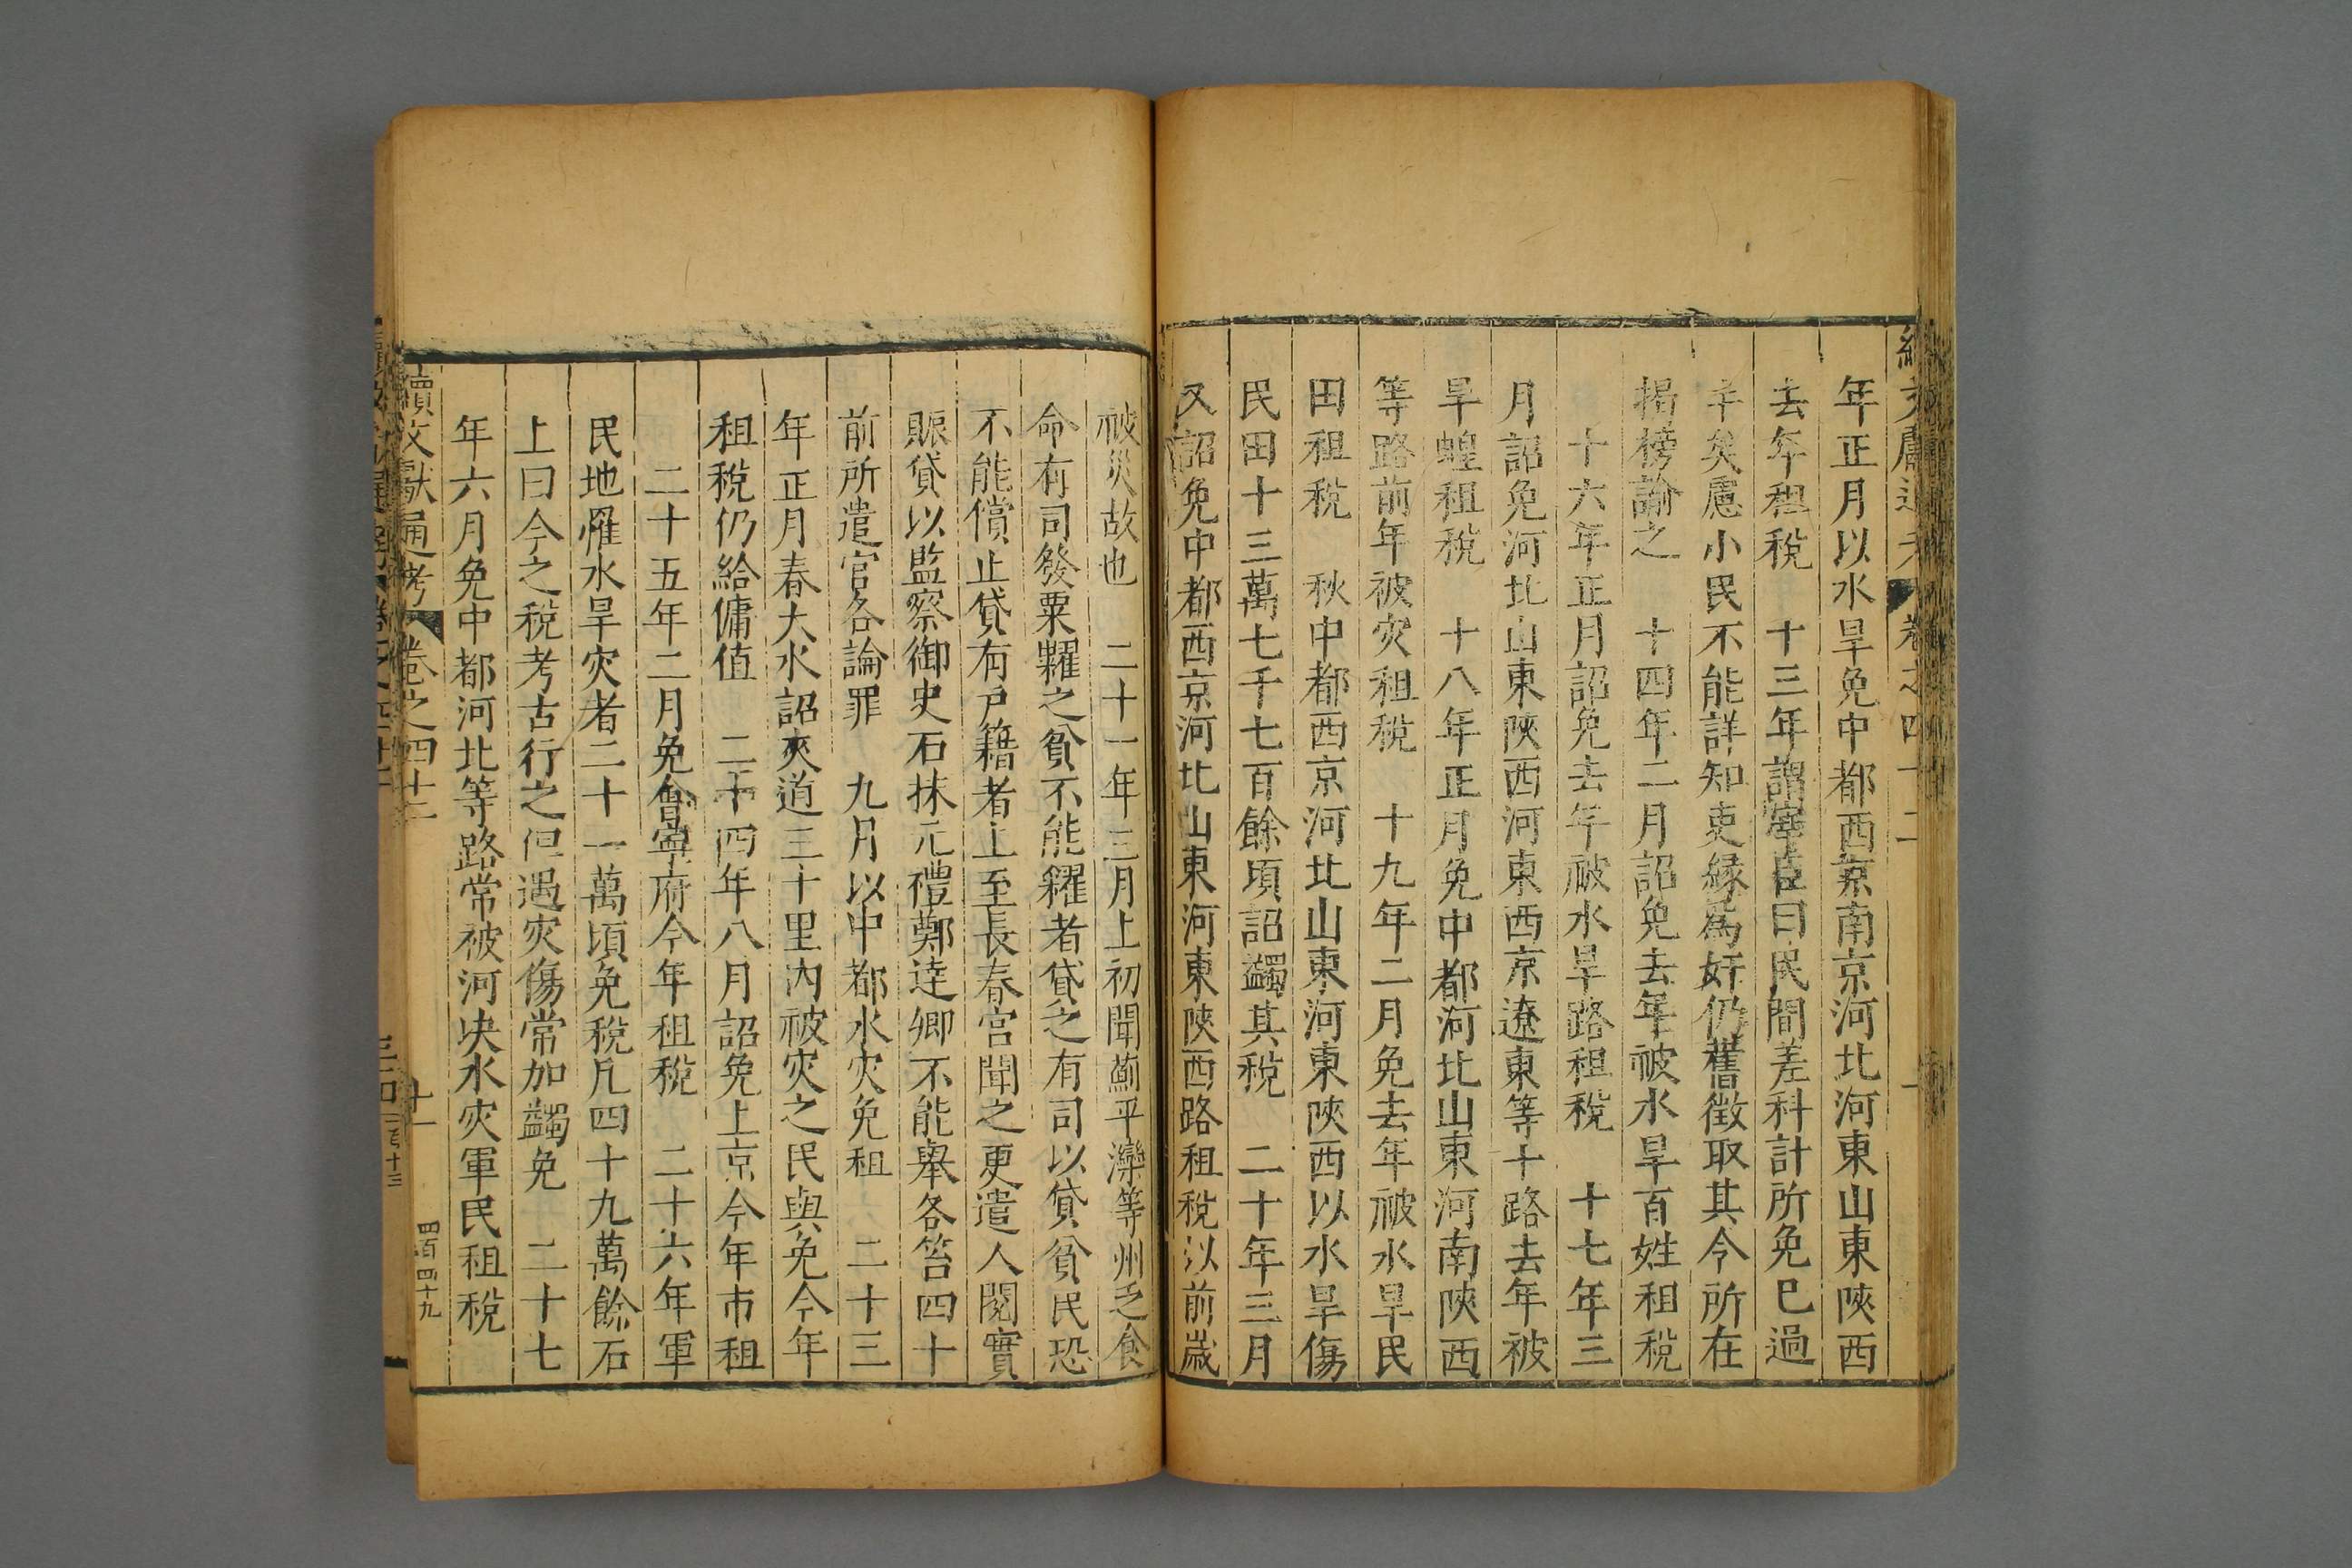 年正月以水旱免中都西京南京河北河東山東陝西
去年租稅　十三年謂宰臣曰民間差科計所免已過
半矣慮小民不能詳知吏緣爲奸仍舊徵取其令所在
揭榜諭之　十四年二月詔免去年被水旱百姓租稅
十六年正月詔免去年被水旱路租稅　十七年三
月詔免河北山東陝西河東西京遼東等十路去年被
旱蝗租稅　十八年正月免中都河北山東河南陝西
等路前年被灾租稅　十九年二月免去年被水旱民
田租稅　秋中都西京河北山東河東陝西以水旱傷
民田十三萬七千七百餘頃詔蠲其稅　二十年三月
又詔免中都西京河北山東河東陝西路租稅以前歲
被災故也　二十一年三月上初聞薊平灤等州乏食
命有司發粟糶之貧不能糴者貸之有司以貸貧民恐
不能償止貸有戶籍者上至長春宮聞之更遣人閱實
賑貸以監察御史石抹元禮鄭達卿不能舉各笞四十
前所遣官各論罪　九月以中都水灾免租　二十三
年正月春大水詔夾道三十里內被灾之民與免今年
租稅仍給傭值　二十四年八月詔免上京今年市租
二十五年二月免會寧府今年租稅　二十六年軍
民地罹水旱灾者二十一萬頃免稅凡四十九萬餘石
上曰今之稅考古行之但遇灾傷常加蠲免　二十七
年六月免中都河北等路常被河決水灾軍民租稅
續文獻通考　卷之四十二　十一　四百四十九